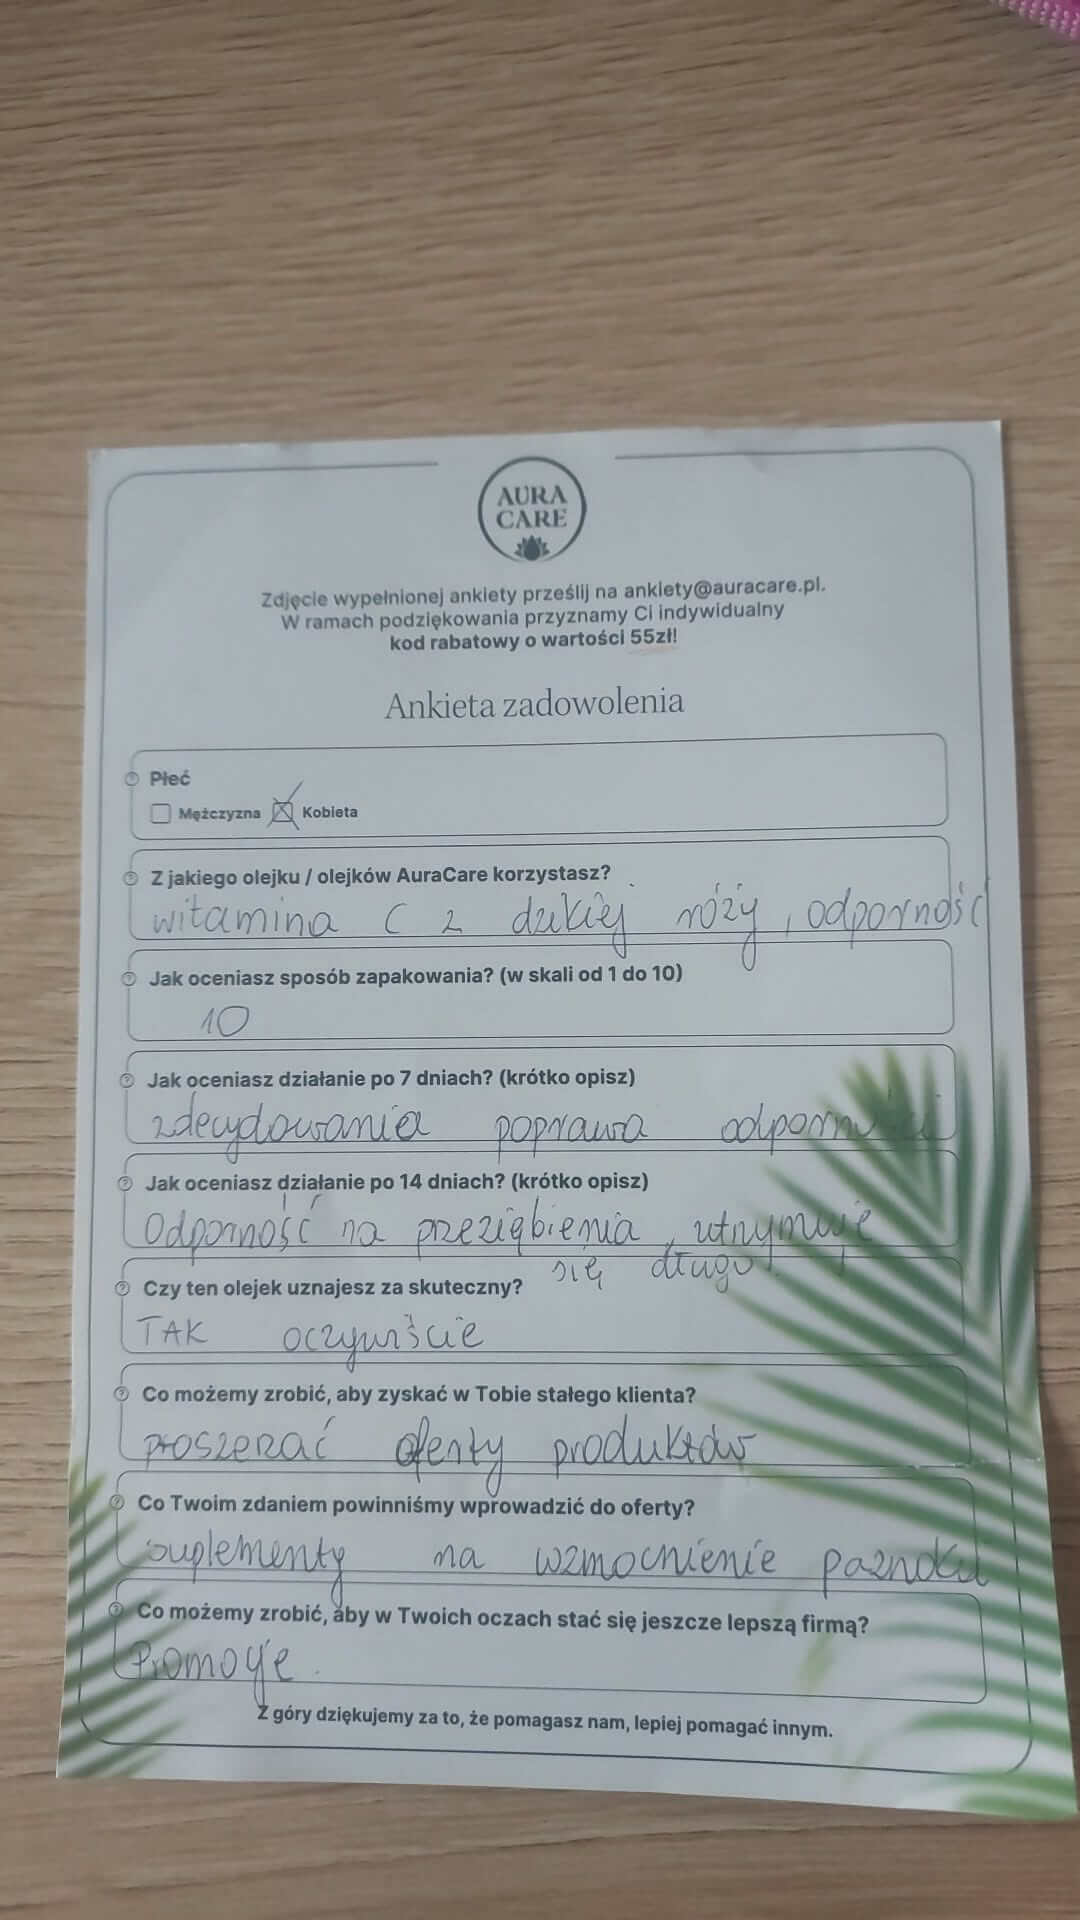 AURA
CARE
Zdjęcie wypełnionej ankiety prześlij na ankiety@auracare.pl.
W ramach podziękowania przyznamy Ci indywidualny
kod rabatowy o wartości 55zł!
Ankieta zadowolenia
Płeć
Mężczyzna Kobieta
Z jakiego olejku / olejków AuraCare korzystasz?
witamina C z dzikiej róży, odporność
Jak oceniasz sposób zapakowania? (w skali od 1 do 10)
10
Jak oceniasz działanie po 7 dniach? (krótko opisz)
zdecydowania poprawa odporności
Jak oceniasz działanie po 14 dniach? (krótko opisz)
Odporność na przeziębienia, utrzymuje
się długo!
Czy ten olejek uznajesz za skuteczny?
TAK oczywiście
Co możemy zrobić, aby zyskać w Tobie stałego klienta?
proszerzać oferty produktów
Co Twoim zdaniem powinniśmy wprowadzić do oferty?
suplementy na wzmocnienie paznokci
Co możemy zrobić, aby w Twoich oczach stać się jeszcze lepszą firmą?
Promocje.
Z góry dziękujemy za to, że pomagasz nam, lepiej pomagać innym.